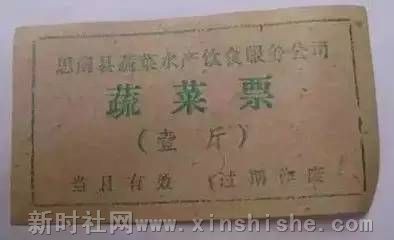 思南县蔬菜水产饮食服务公司
蔬菜票
(壹斤)
当日有效 (过期作废
新时社网www.xinshishe.com